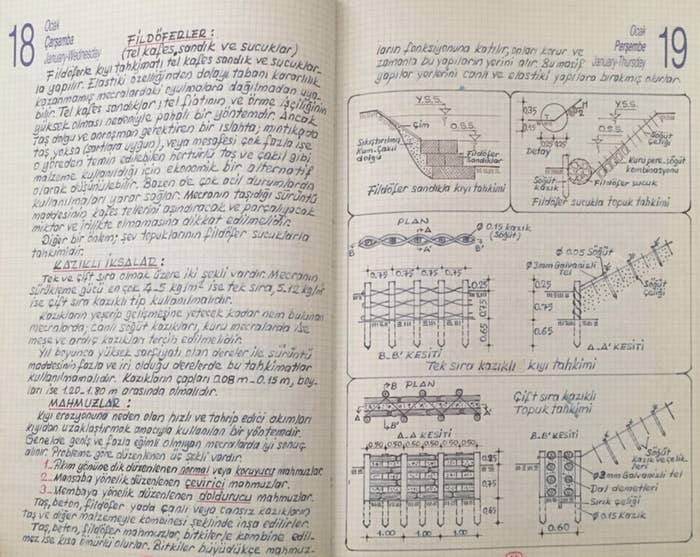 18
Ocak
Çarşamba
January-Wednesday
FİLDÖFERLER :
(Tel kafes, sandık ve sucuklar)
Fildöferle kıyı tahkimatı, tel kafes sandık ve sucuklar-
la yapılır. Elastiki özelliğinden dolayı tabanı kararlılık
kazanmamış mecralardaki oyulmalara dağılmadan uya-
bilir. Tel kafes sandıklar; tel fiatının ve örme işçiliğinin
yüksek olması nedeniyle pahalı bir yöntemdir. Ancak
taş dolgu ve anroşman gerektiren bir ıslahta; mıntıkada
taş yoksa (şartlara uygun), veya mesafesi çok fazla ise
o yöreden temin edilebilen hertürlü Taş ve çakıl gibi
malzeme kullanıldığı için ekonomik bir alternatif
olarak düşünülebilir. Bazen de çok acil durumlarda
kullanılmaları yarar sağlar. Mecranın taşıdığı sürüntü
maddesinin kafes tellerini aşındıracak ve parçalıyacak
miktar ve irilikte olmamasına dikkat edilmelidir.
Diğer bir önlem; şev topuklarının fildöfer sucuklarla
tahkimidir.
KAZIKLI İKSALAR :
Tek ve çift sıra olmak üzere iki şekli vardır. Mecranın
sürükleme gücü en çok 4-5 kg/m² ise tek sıra, 5-12 kg/m²
ise çift sıra kazıklı tip kullanılmalıdır.
Kazıkların yeşerip gelişmesine yetecek kadar nem bulunan
mecralarda; canlı söğüt kazıkları, kuru mecralarda ise
meşe ve ardıç kazıkları tercih edilmelidir.
Yıl boyunca yüksek sarfiyatı olan dereler ile sürüntü
maddesinin fazla ve iri olduğu derelerde bu tahkimatlar
kullanılmamalıdır. Kazıkların çapları 0.08 m – 0.15 m, boy-
ları ise 1.20 – 1.80 m arasında olmalıdır.
MAHMUZLAR :
Kıyı erozyonuna neden olan hızlı ve tahrip edici akımları
kıyıdan uzaklaştırmak amacıyla kullanılan bir yöntemdir.
Genelde geniş ve fazla eğimli olmıyan mecralarda iyi sonuç
alınır. Probleme göre düzenlenen üç şekli vardır.
1_ Akım yönüne dik düzenlenen normal veya koruyucu mahmuzlar.
2_ Mansaba yönelik düzenlenen çevirici mahmuzlar.
3_ Membaya yönelik düzenlenen doldurucu mahmuzlar.
Taş, beton, fildöfer yada canlı veya cansız kazıkların
taş ve diğer malzemeyle kombinesi şeklinde inşa edilirler.
Taş, beton, fildöfer mahmuzlar, bitkilerle kombine edil-
mez ise kısa ömürlü olurlar. Bitkiler büyüdükçe mahmuz-
ların fonksiyonuna katılır, onları korur ve
zamanla bu yapıların yerini alır. Bu masif
yapılar yerlerini canlı ve elastiki yapılara bırakmış olurlar.
Ocak
Perşembe
January-Thursday
19
Y.S.S.
Çim
O.S.S.
Sıkıştırılmış
Kum-Çakıl
dolgu
Fildöfer
Sandıklar
Fildöfer sandıkla kıyı tahkimi
0.35
0.15
Detay
Y.S.S.
O.S.S.
Söğüt
çeliği
Kuru pere, söğüt
kombinasyonu
Söğüt
kazık
Fildöfer sucuk
Fildöfer sucukla topuk tahkimi
PLAN
A
B
B'
A'
Ø 0.15 kazık
(Söğüt)
0.75 0.75 0.75 0.75
0.25
0.75
0.65
B_B' KESİTİ
Ø 0.05 Söğüt
Ø 3mm Galvanizli
tel
Söğüt
Çeliği
0.25
0.75
0.65
A_A' KESİTİ
Tek sıra kazıklı kıyı tahkimi
B
PLAN
A
A
B
A_A KESİTİ
0.50 0.50 0.50 0.50 0.50 0.50
0.25
0.75
0.65
1.00 1.00 1.00
Çift sıra kazıklı
Topuk tahkimi
B_B' KESİTİ
Söğüt
Kazık ve çelik-
leri
Ø 3mm Galvanizli tel
Dal demetleri
Sırık çeliği
Ø 0.15 Kazık
0.60